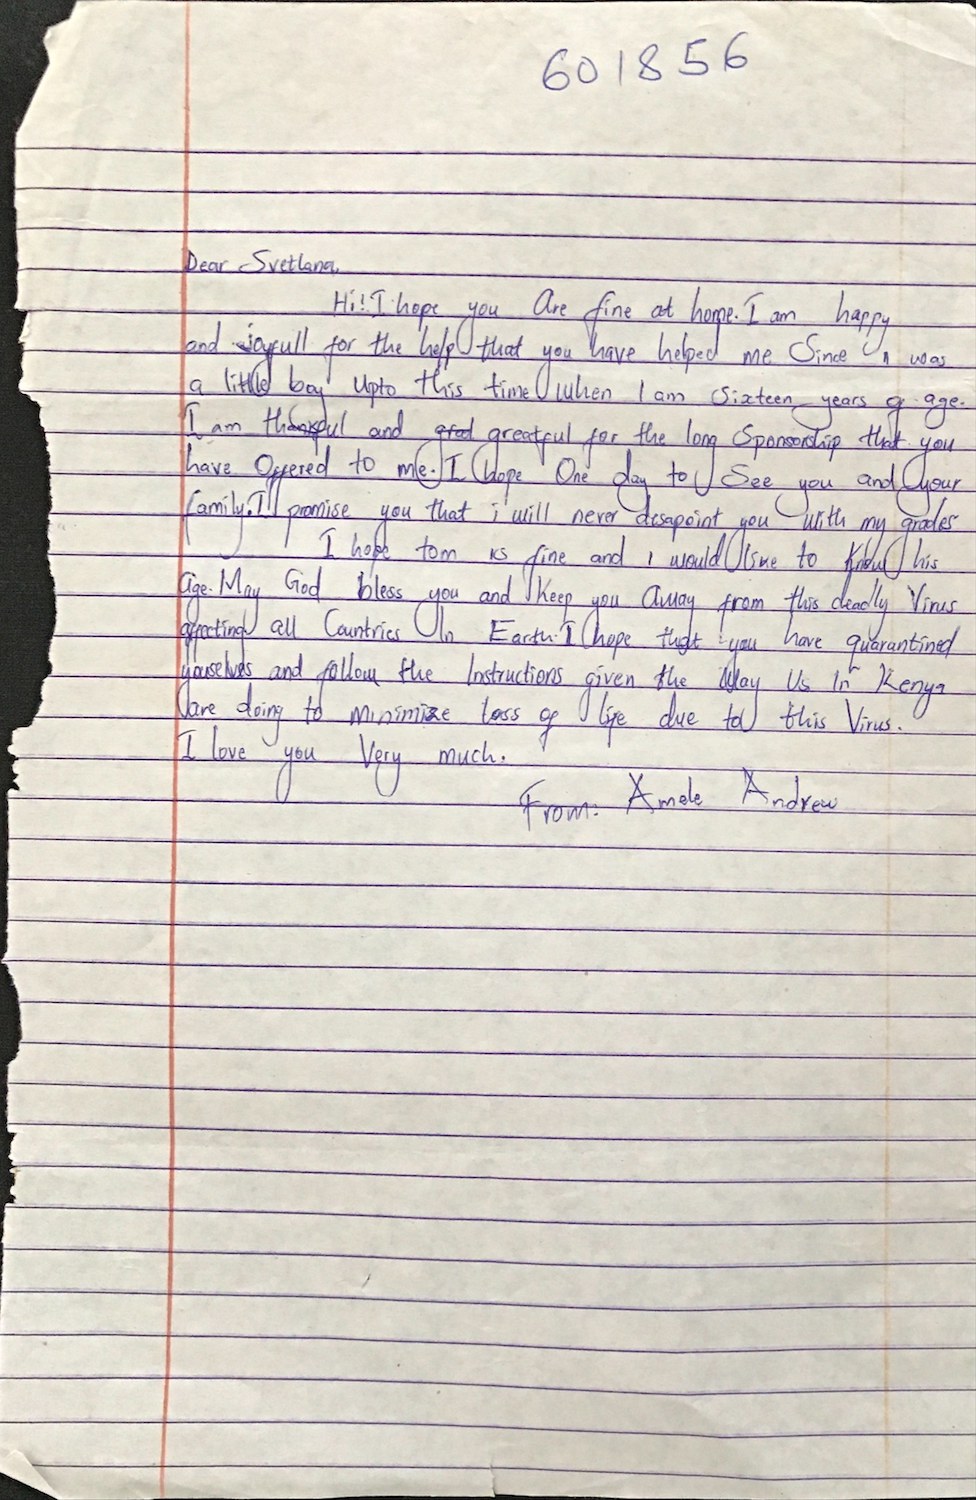 601856
Dear Svetlana,
Hi! I hope you are fine at home. I am happy
and joyfull for the help that you have helped me Since I was
a little boy Upto this time when I am Sixteen years of age.
I am thankful and greatful for the long Sponsorship that you
have Offered to me. I hope One day to See you and your
family. I promise you that i will never disapoint you with my grades
I hope tom is fine and I would like to Know his
age. May God bless you and Keep you Away from this deadly Virus
affecting all Countries In Earth. I hope that you have quarantined
yourselves and follow the Instructions given the Way Us In Kenya
are doing to minimize loss of life due to this Virus.
I love you Very much.
From: Amele Andrew